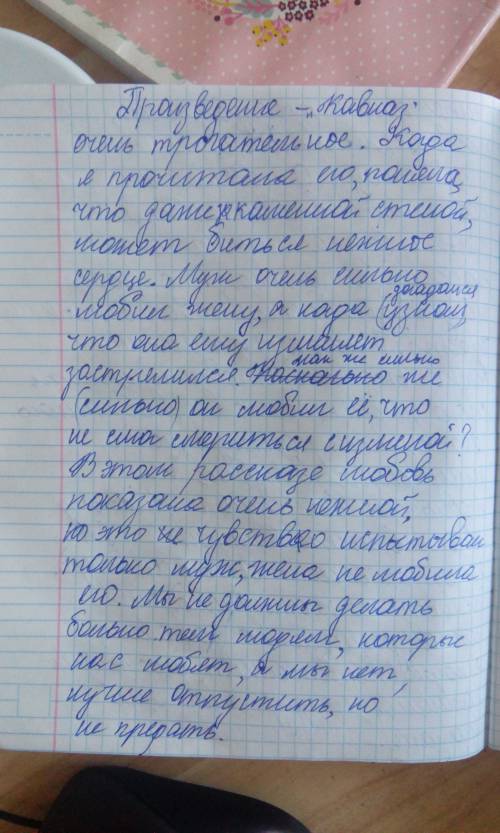 Произведение – „Кавказ"
очень трогательное. Када
я прочитала его, поняла,
что даже за каменной стеной,
может биться нежное
сердце. Муж очень сильно
любил жену, и када (узнал) догадался
что она ему изменяет
застрелился. Насколько же так же сильно
(сильно) он любил её, что
не смог смериться с изменой?
В этом рассказе любовь
показана очень нежной,
но это же чувство испытывал
только муж, жена не любила
его. Мы не должны делать
больно тем людям, которые
нас любят, а мы нет,
лучше отпустить, но
не предать.